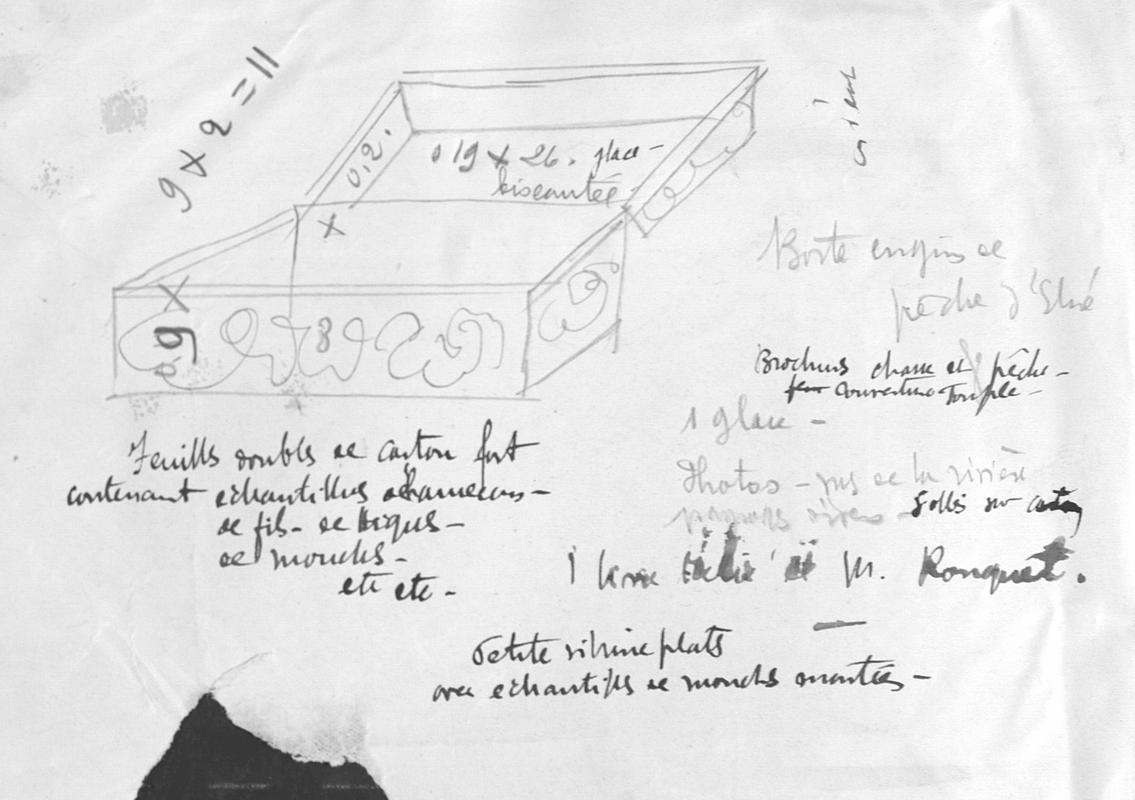 9 x 2 = 11
0,2.
0 19 x 26. glace
biseautée
X
0,9 X
8
Boite engins de
pêche d'Eté
Brochures chasse et pêche -
couverture souple -
1 glace -
Photos - vues de la rivière
collés sur carton
1 livre relié à M. Ronquet.
Feuilles doubles de carton fort
contenant échantillons d'hameçons -
de fils - de tiques -
de mouches -
etc etc -
Petite vitrine plate
avec échantillons de mouches montées -